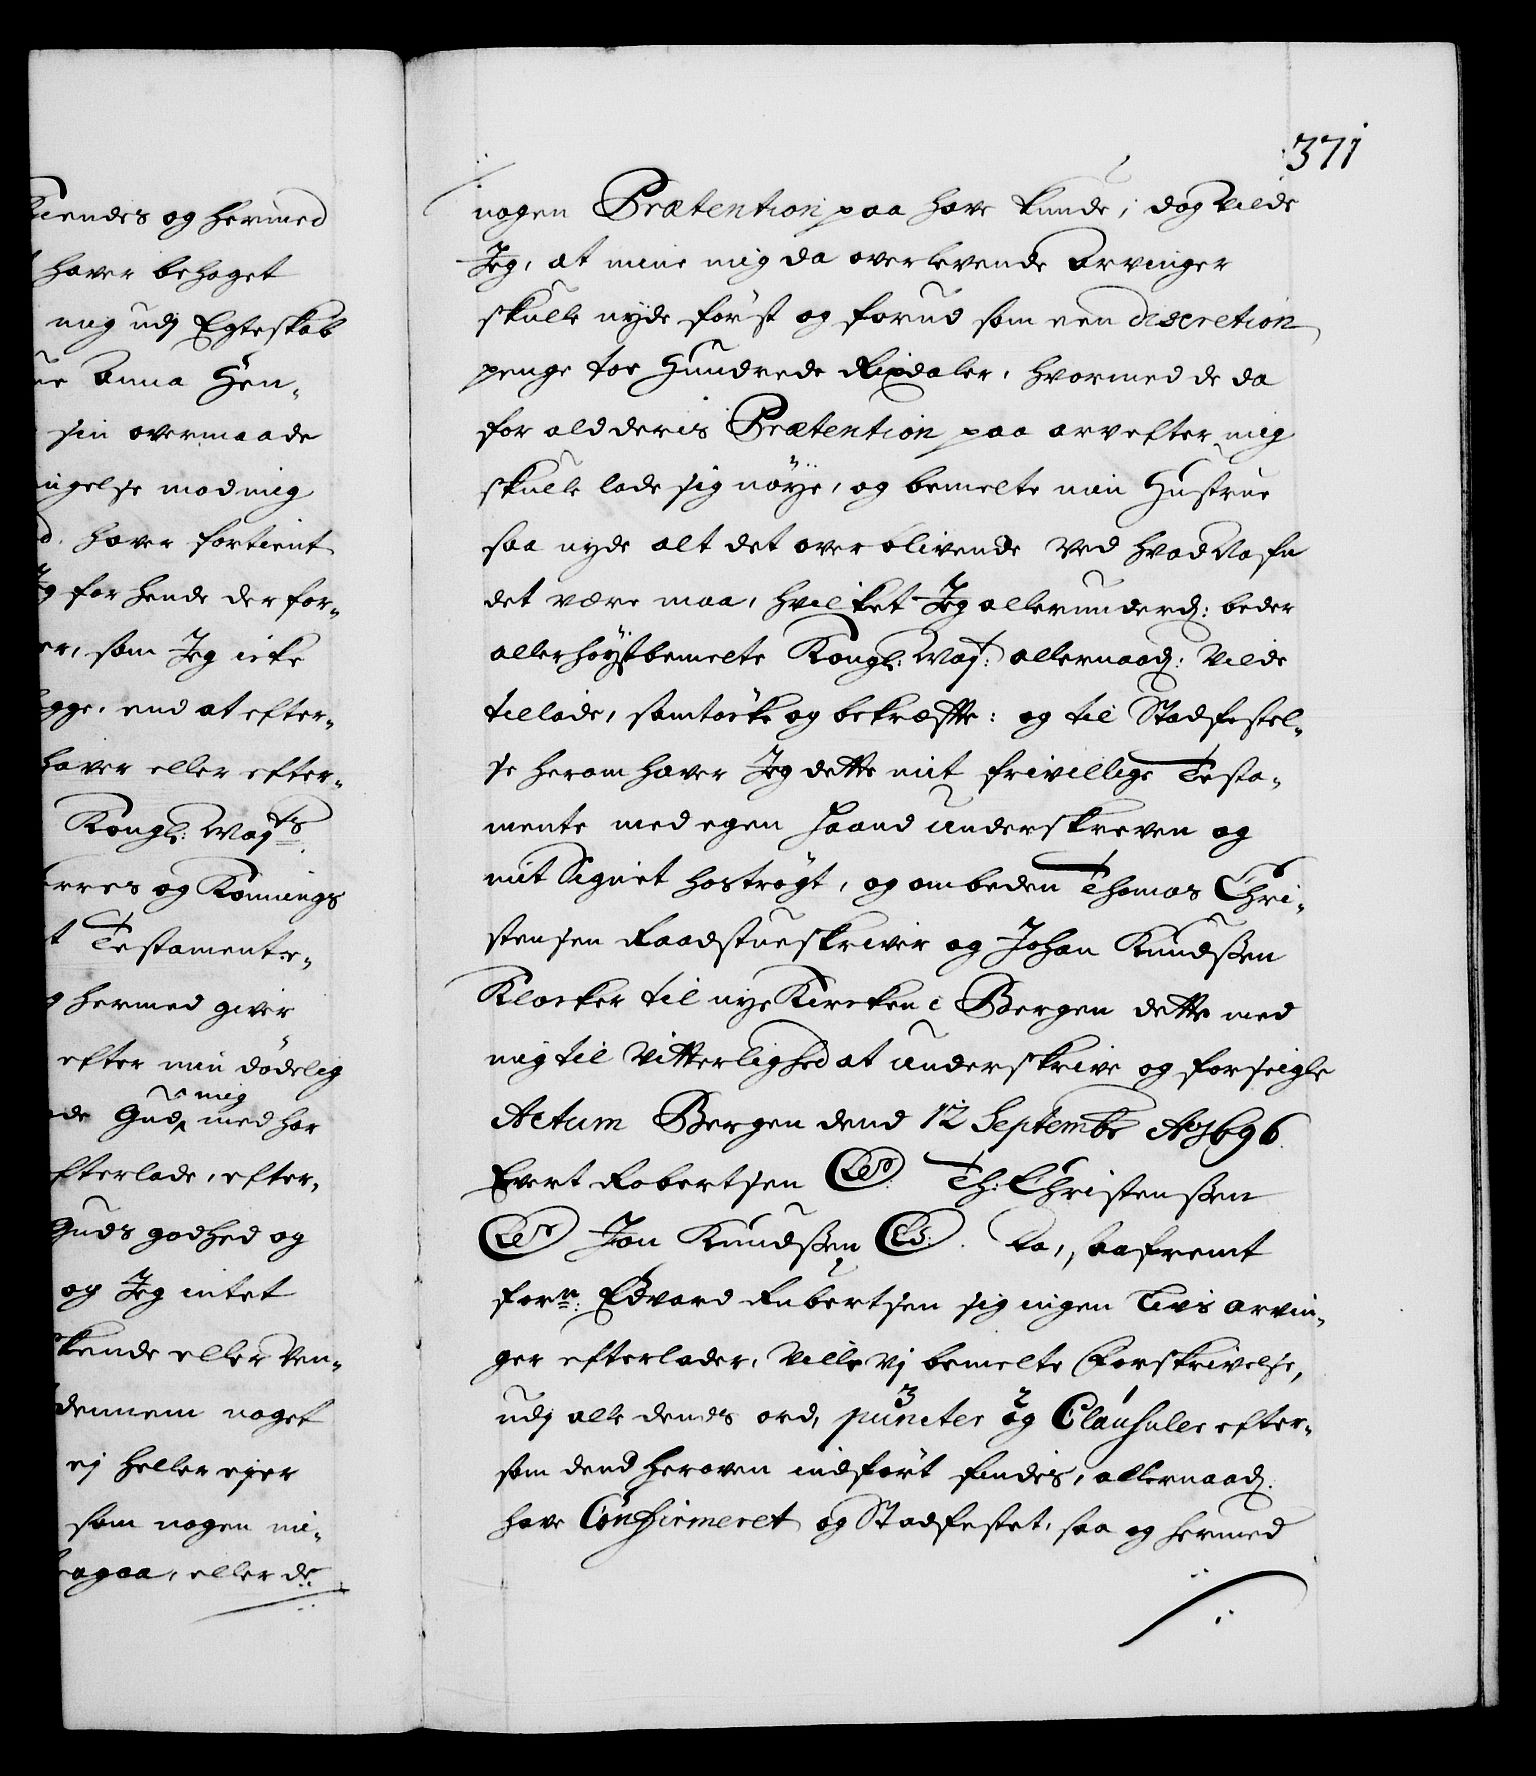 kiendes og hermed
haver behaget
mig udj Egteskab
ne Anna Hen-
sin overmaade
ingelse mod mig
d. haver fortient
Jeg for hende der for-
er, som Jeg icke
egge, end at efter-
haver eller efter-
Kongl: Mayts
erres og Konnings
t Testamente-
g hermed giver
efter min dödelig
mig
de Gud^ med har
efterlade, efter-
Guds godhed og
og Jeg intet
kende eller Ven-
dennem noget
ej heller ejer
som nogen mi-
agaa, eller de
371
nogen Prætention paa have kunde; dog Vilde
Jeg, at mine mig da overlevende Arvinger
skulle nyde först og forud som een discretion
penge toe Hundrede Rixdaler, hvormed de da
for ald deris Prætention paa arv efter mig
skulle lade sig nöye, og bemelte min Hustrue
saa nyde alt det over blivende Ved hvad Nafn
det være maa, hvilket Jeg allerunderd: beder
allerhöystbemelte Kongl: May: allernaad: Vilde
tillade, samtöcke og bekræffte: og til Stadfestel-
se herom haver Jeg dette mit frivillige Testa-
mente med egen Haand underskreven og
mit Signet hoströgt, og ombeden Thomas Chri-
stensen Raadstueskriver og Johan Knudssen
Klocker til nye Kircken i Bergen dette med
mig til Vitterlighed at underskrive og forseigle
Actum Bergen dend 12 Septembr Ao 1696.
Evert Robertsen (LS) Th: Christenssen
(LS) Jon Knudssen (LS). Da, saafremt
forn: Edvard Rubertsen sig ingen Livs arvin-
ger efterlader, Ville Vj bemelte Forskrivelse,
udj alle dends ord, puncter og Clausuler efter-
3 2 1
som dend heroven indfört findis, allernaad:
have Confirmeret og Stadfestet, saa og hermed